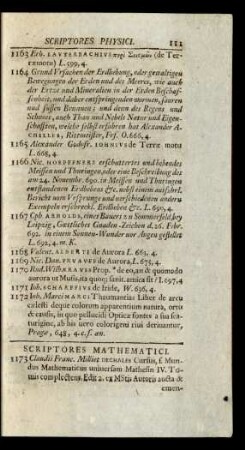 SCRIPTORES PHYSICI. 111
1163 Erh. LAUTERBACHIUS περὶ Σεισμῶν (de Ter-
ræmotu) L. 599, 4.
1164 Grund Ursachen der Erdbebung, oder gewaltigen
Bewegungen der Erden und des Meeres, wie auch
der Ertze und Mineralien in der Erden Beschaf-
fenheit, und daher entspringenden warmen, sauren
und süssen Brunnen; und denn des Regens und
Schnees, auch Thau und Nebels Natur und Eigen-
schafften, welche selbst erfahren hat Alexander A-
CHILLES, Rittmeister, Frf. O. 666, 4.
1165 Alexander Gothofr. IOHNIUS de Terræ motu
L. 668, 4.
1166 Nic. HOEPFFNERI erschüttertes und bebendes
Meissen und Thüringen, oder eine Beschreibung des
am 24. Novembr. 690. in Meissen und Thüringen
entstandenen Erdbebens &c. nebst einem ausführl.
Bericht vom Ursprunge und verschiedenen andern
Exempeln erschreckl. Erdbeben &c. L. 690, 4.
1167 Cph. ARNOLDS, eines Bauers zu Sommerfeld bey
Leipzig, Göttliches Gnaden-Zeichen d. 26. Febr.
692. in einem Sonnen-Wunder vor Augen gestellet
L. 692, 4. m. K.
1168 Valent. ALBERTI de Aurora L. 665, 4.
1169 Nic. IMERVAUUS de Aurora, L. 675, 4.
1170 Rud. de eo, an & quomodo
aurora ut Musis, ita quoq; sanit. amica sit / L. 697, 4
1171 Ioh. SCHARFFIUS de Iride, W. 636, 4.
1172 Ioh. Marci MARCI Thaumantias Liber de arcu
cælesti deque colorum apparentium natura, ortu
& causis, in quo pellucidi Opticæ fontes a sua sca-
turigine, ab his vero colorigeni rivi derivantur,
Pragæ, 648, 4. c. f. an.
SCRIPTORES MATHEMATICI.
1173 Claudii Franc. Milliet DECHALES Cursus, s. Mun-
dus Mathematicus universam Mathesin IV. To-
mis complectens. Edit. 2. ex Mstis Autoris aucta &
emen-